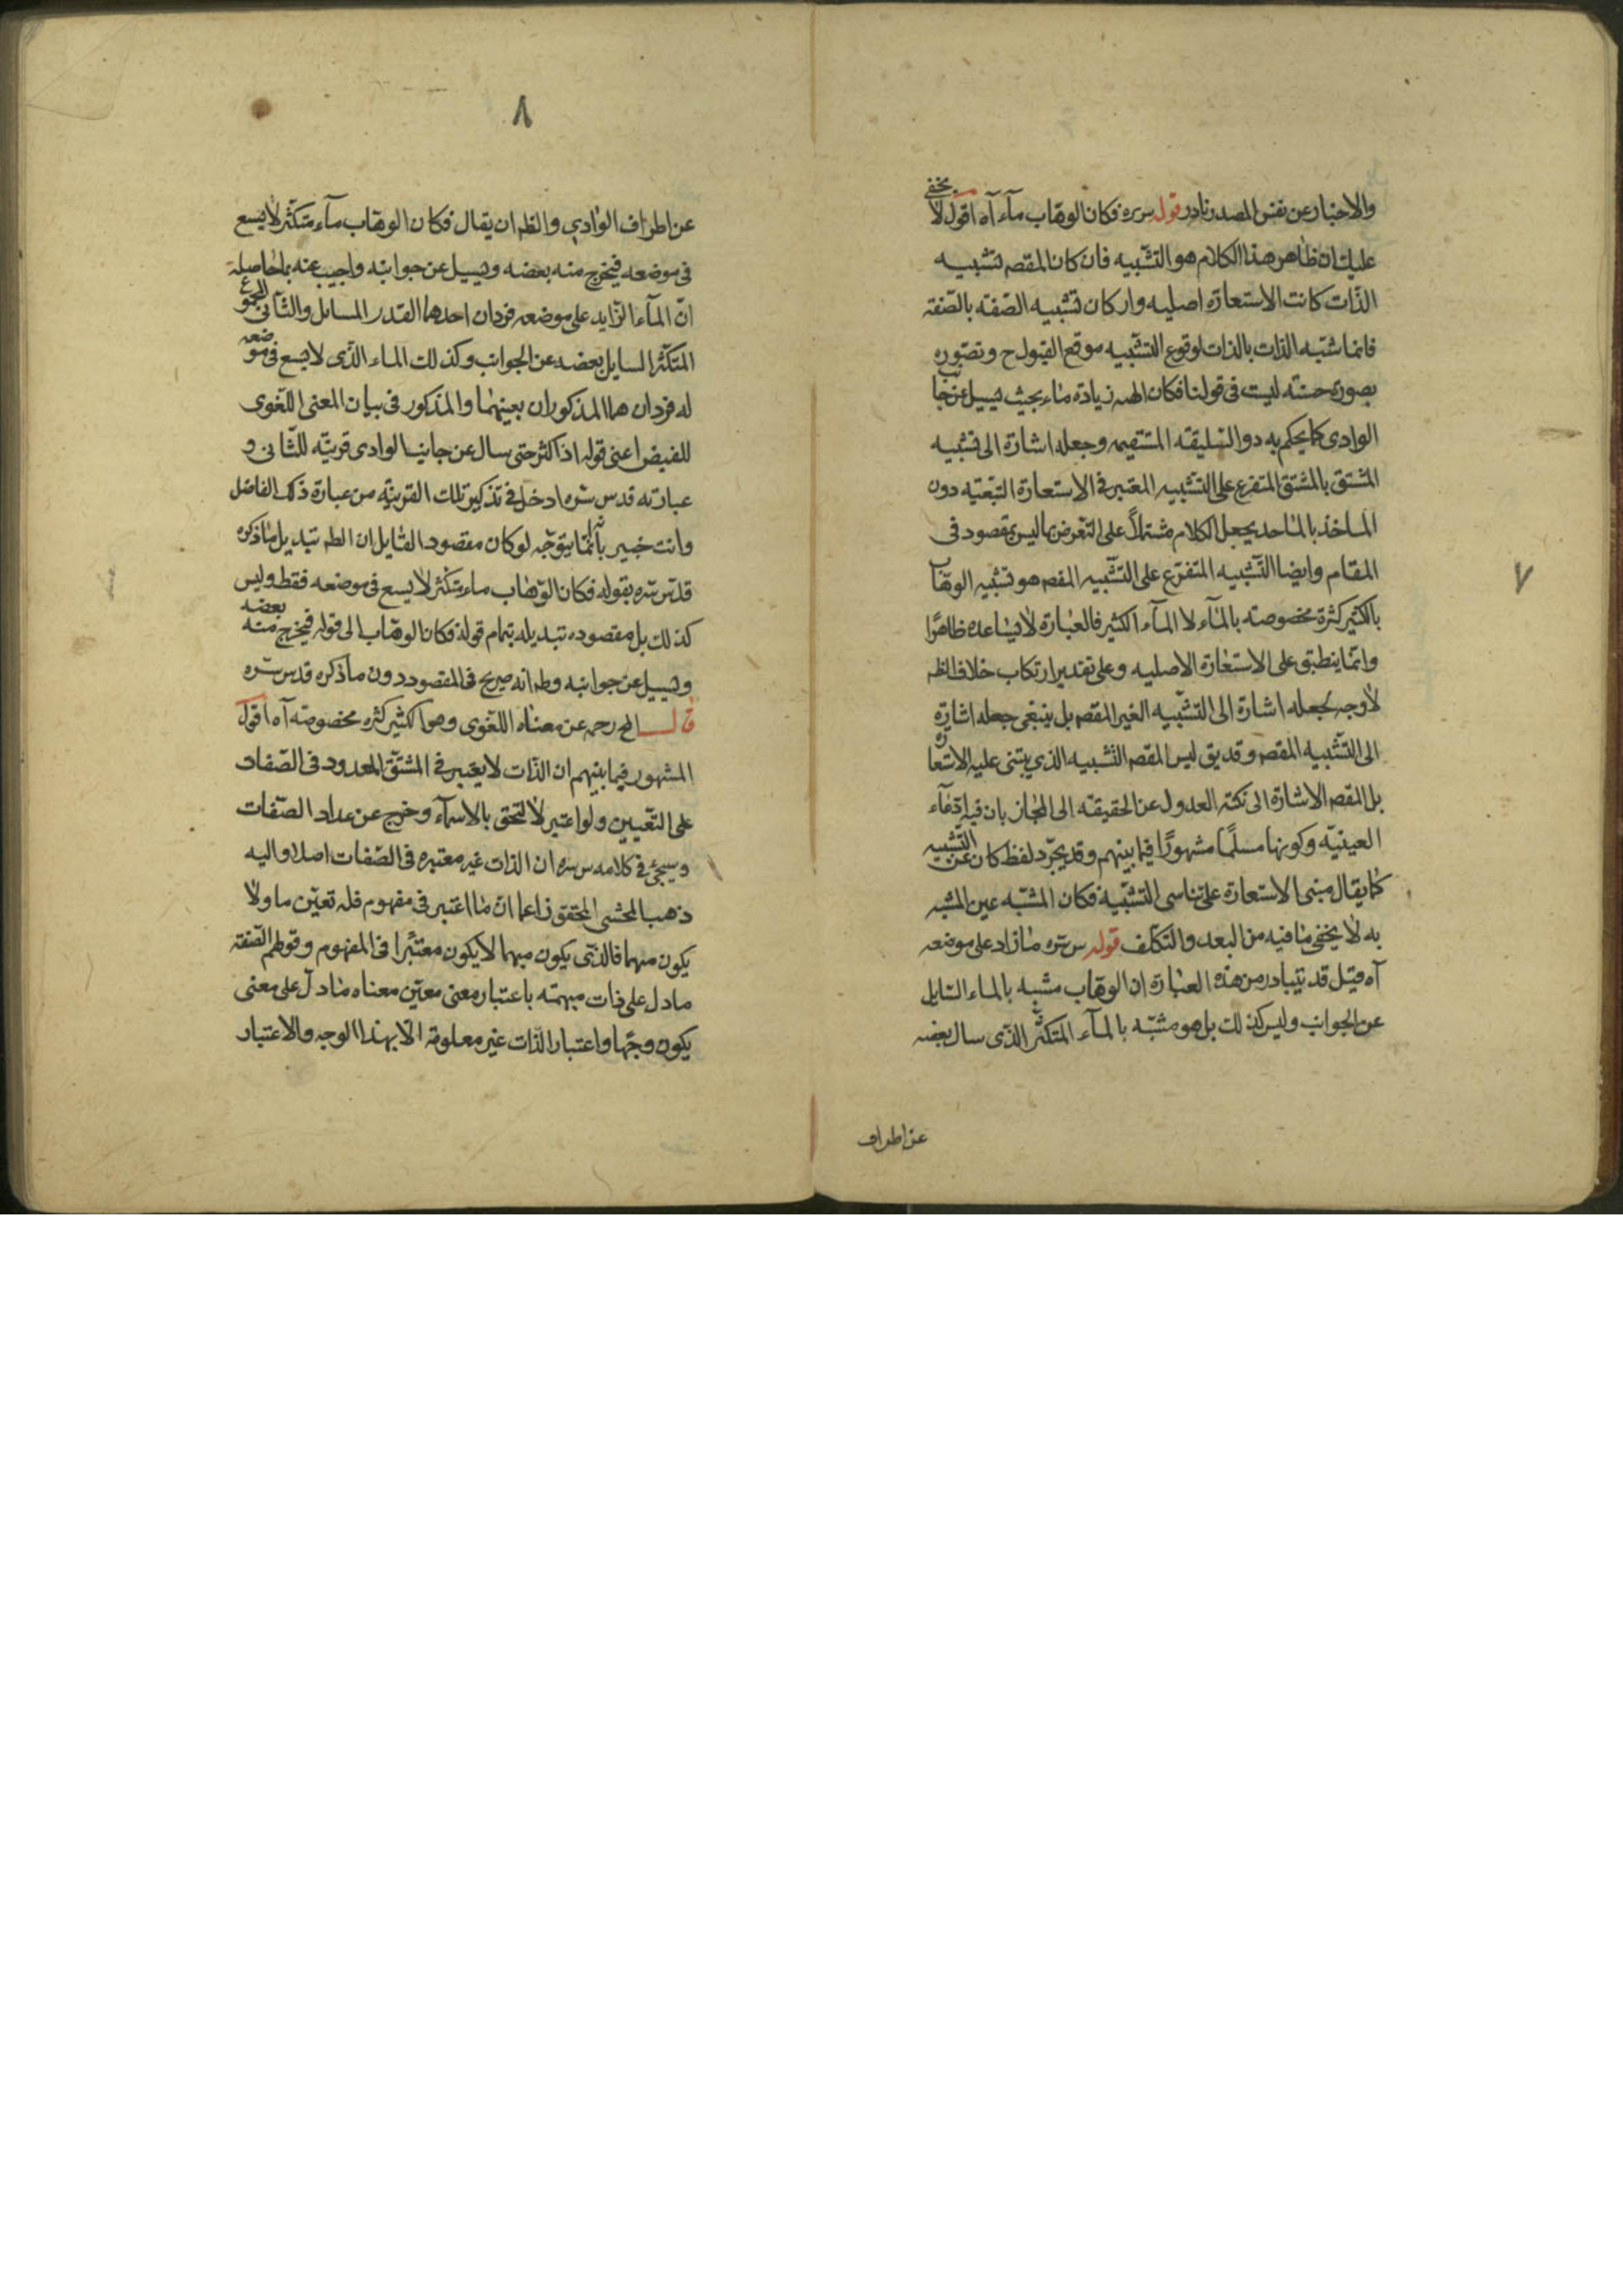 ٧
والاخبار عن نفس المصدر نادر قوله س سره فكان الوهاب ماء آه اقول لا يخفى
عليك ان ظاهر هذا الكلام هو التشبيه فان كان المقصـ تشبيه
الذات كانت الاستعارة اصليه وان كان تشبيه الصفة بالصفة
فانما شبّه الذات بالذات لوقوع التشبيه موقع القبول ح وتصوره
بصورة حسنة ليست فى قولنا فكان الهبه زيادة ماء بحيث يسيل عن جانب
الوادى كما يحكم به ذو السليقة المستقيمه وجعله اشارة الى تشبيه
المشتق بالمشتق المتفرع على التشبيه المعتبر فى الاستعارة التبعيه دون
الماخذ بالماخذ يجعل الكلام مشتملاً على التعرض بما ليس بمقصود فى
المقام وايضا التشبيه المتفرع على التشبيه المقصـ هو تشبيه الوهاب
بالكثير كثرة مخصوصة بالماء لا الماء الكثير فالعبارة لا يساعده ظاهرًا
وانما ينطبق على الاستعارة الاصليه وعلى تقدير ارتكاب خلاف الظـ
لا وجه لجعله اشارة الى التشبيه الغير المقصـ بل ينبغى جعله اشارة
الى التشبيه المقصـ وقد يق ليس المقصـ التشبيه الذي يبتنى عليه الاستعارة
بل المقصـ الاشارة الى نكتة العدول عن الحقيقة الى المجاز بان فيه ادّعاء
العينيّة وكونها مسلمًا مشهورًا فيما بينهم وقد يجرّد لفظ كان عن التشبيه
كما يقال مبنى الاستعارة على تناسى التشبيه فكان المشبّه عين المشبه
به لا يخفى ما فيه من البعد والتكلف قوله س سره ما زاد على موضعه
آه قيل قد يتبادر من هذه العبارة ان الوهاب مشبه بالماء السايل
عن الجوانب وليس كذلك بل هو مشبّه بالماء المتكثر الذى سال بعضه
عن اطراف
٨
عن اطراف الوادي والظـ ان يقال فكان الوهاب ماء متكثر لا يسع
فى موضعه فيخرج منه بعضه ويسيل عن جوانبه واجيب عنه بما حاصله
انّ الماء الزايد على موضعه فردان احدهما القدر السايل والثانى المجموع
المتكثر السايل بعضه عن الجوانب وكذلك الماء الذى لا يسع فى موضعه
له فردان هما المذكوران بعينهما والمذكور فى بيان المعنى اللغوى
للفيض اعنى قوله اذا كثر حتى سال عن جانب الوادى قرينة للثانى و
عبارته قدس سره ادخل فى تذكير تلك القرينة من عبارة ذلك الفاضل
وانت خبير بأنه انما يتوجّه لو كان مقصود القايل ان الظـ تبديل ما ذكره
قدس سره بقوله فكان الوهاب ماء متكثر لا يسع فى موضعه فقط وليس
كذلك بل مقصوده تبديله بتمام قوله فكان الوهاب الى قوله فيخرج منه بعضه
ويسيل عن جوانبه وظـ انه صريح فى المقصود دون ما ذكره قدس سره
قال المح رحمه عن معناه اللغوى وهو الكثير كثره مخصوصة آه اقول
المشهور فيما بينهم ان الذات لا يعتبر فى المشتق المعدود فى الصفات
على التعيين ولو اعتبر لالتحق بالاسماء وخرج عن عداد الصفات
وسيجئ فى كلامه س سره ان الذات غير معتبره فى الصفات اصلا واليه
ذهب المحشى المحقق زاعما ان ما اعتبر فى مفهوم فله تعيّن ما ولا
يكون مبهما فالذى يكون مبهما لا يكون معتبرًا فى المفهوم وقولهم الصفة
ما دل على ذات مبهمة باعتبار معنى معيّن معناه ما دلّ على معنى
يكون وجهًا واعتبار الذات غير معلومة الا بهذا الوجه والاعتبار